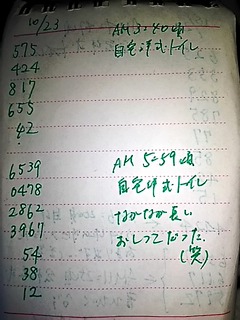 10/23
AM 3:40頃
575
自宅洋式トイレ
424
817
655
42
6539
AM 5:59頃
0478
自宅洋式トイレ
2862
なかなか長い
3967
おしっこだった
54
(笑)
38
12